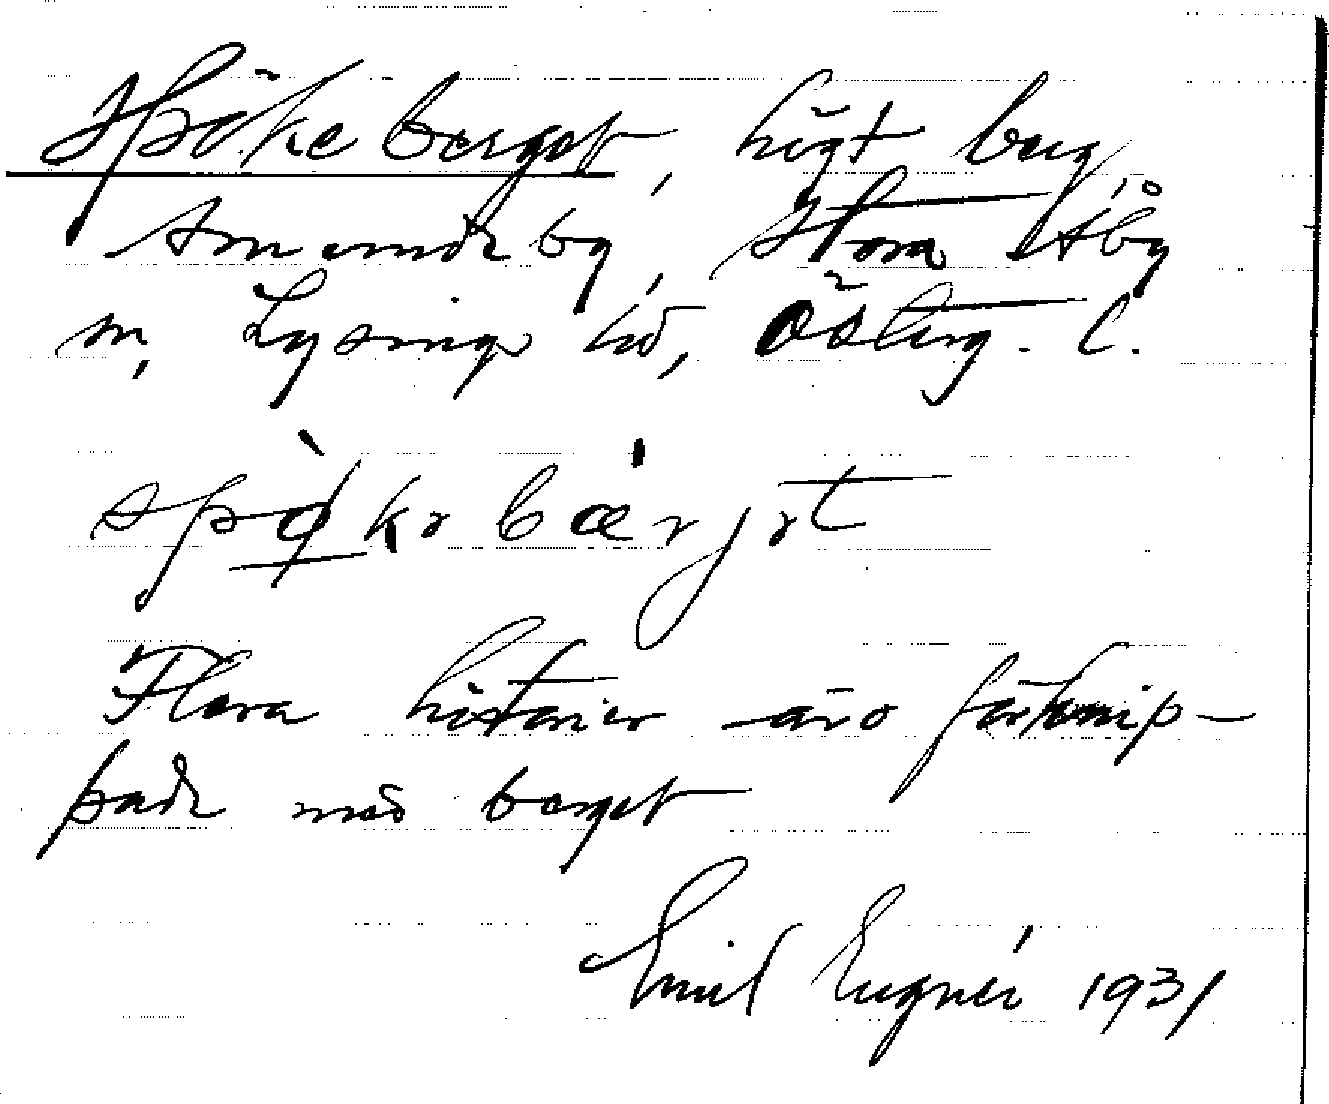 Spökeberget, högt berg,
Smemdeby, Stora Åby
sn, Lysings hd, Österg. l.
spø̀kəbærjət
Flera historier äro förknip-
pade med berget
Emil Eugnér 1931